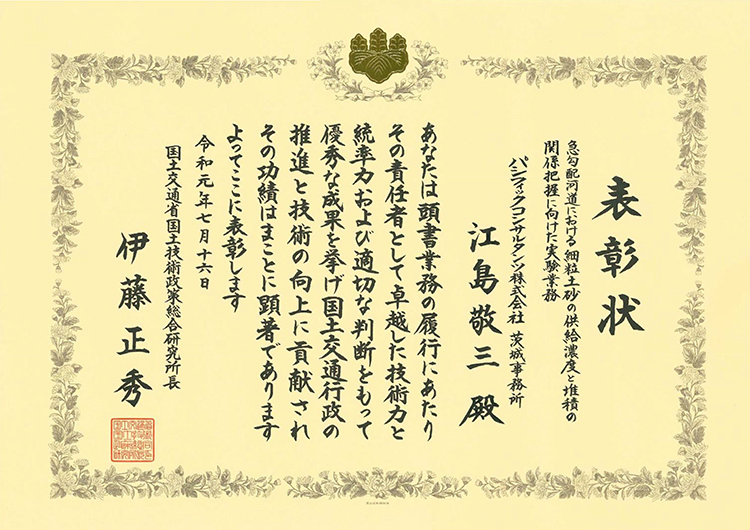 表彰状
急勾配河道における細粒土砂の供給濃度と堆積の
関係把握に向けた実験業務
パシフィックコンサルタンツ株式会社 茨城事務所
江島敬三 殿
あなたは頭書業務の履行にあたり
その責任者として卓越した技術力と
統率力および適切な判断をもって
優秀な成果を挙げ国土交通行政の
推進と技術の向上に貢献され
その功績はまことに顕著であります
よってここに表彰します
令和元年七月十六日
国土交通省国土技術政策総合研究所長
伊藤正秀